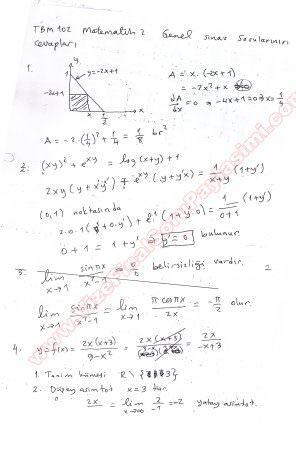 TBM 102 Matematik 2 Genel sınav Sorularının
cevapları
1.
y
1
y=-2x+1
-2x+1
x
1/2
x
A = x.(-2x+1)
= -2x²+x
dA/dx = 0 ⇒ -4x+1=0 ⇒ x=1/4
A = -2.(1/4)²+1/4 = 1/8 br²
2. (xy)² + e^xy = log(x+y)+1
2xy(y+xy') + e^xy (y+y'x) = 1/(x+y) (1+y')
(0,1) noktasında
2.0.1(1+0.y') + e⁰(1+y'.0) = 1/(0+1) (1+y')
0+1 = 1+y' ⇒ y'=0 bulunur.
3. lim x→1 sinπx/(x²-1) = 0/0 belirsizliği vardır.
lim x→1 sinπx/(x²-1) = lim x→1 π cosπx/2x = -π/2 olur.
4. y=f(x)= 2x(x+3)/(9-x²) = 2x(x+3)/(3-x)(3+x) = 2x/(-x+3)
1. Tanım kümesi R\{3}
2. Düşey asimtot x=3 tür.
" 2x = lim x→∞ 2/-1 = -2 yatay asimtot.
www.VizeFinalSoruPaylasimi.com